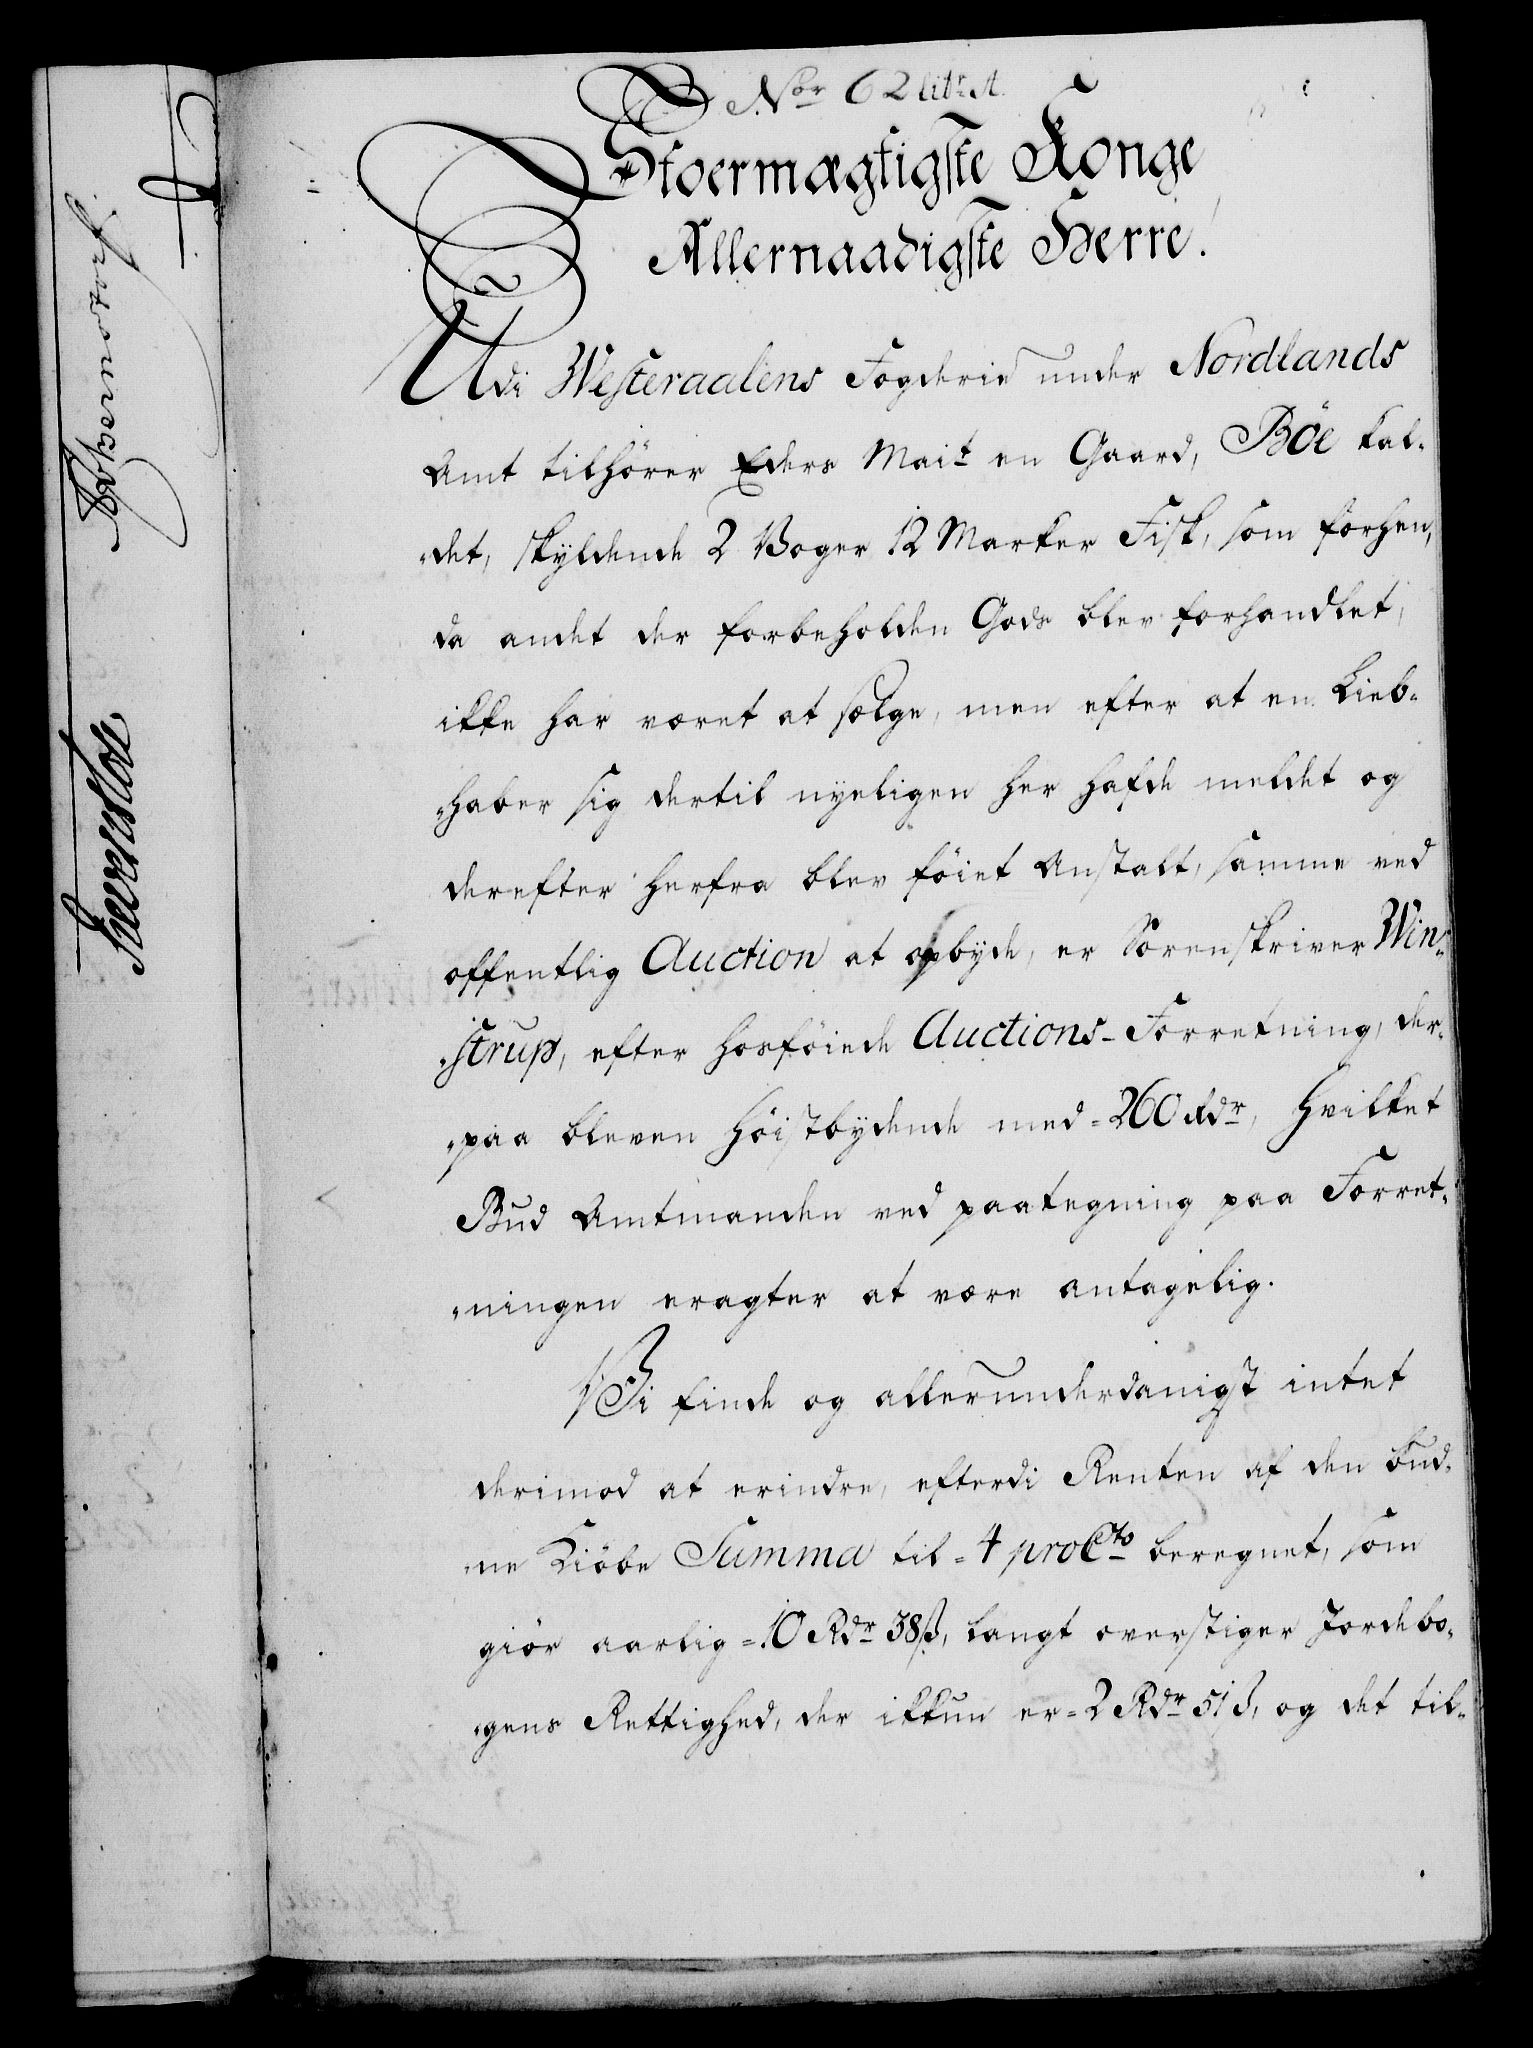 Nor 62 litr A.
Stoermægtigste Konge
Allernaadigste Herre!
Udi Westeraalens Fogderie under Nordlands
Amt tilhører Eders Mait en Gaard, Böe kal-
det, skyldende 2 Voger 12 Marker Fisk, som forhen,
da andet der forbeholden Gods blev forhandlet,
ikke har været at sælge, men efter at en Lieb-
haber sig dertil nyeligen her hafde meldet og
derefter herfra blev føiet Anstalt, samme ved
offentlig Auction at opbyde, er Sorenskriver Win-
strup, efter hosføiede Auctions-Forretning, der-
paa bleven høistbydende med = 260 Rdr, hvilket
Bud Amtmanden ved paategning paa Forret-
ningen eragter at være antagelig.
Vi finde og allerunderdanigst intet
derimod at erindre, efterdi Renten af den bud-
ne Kiöbe Summa til = 4 proCto beregnet, som
giør aarlig = 10 Rdr 38 ß, langt overstiger Jordebo-
gens Rettighed, der ikkun er = 2 Rdr 51 ß, og det til-